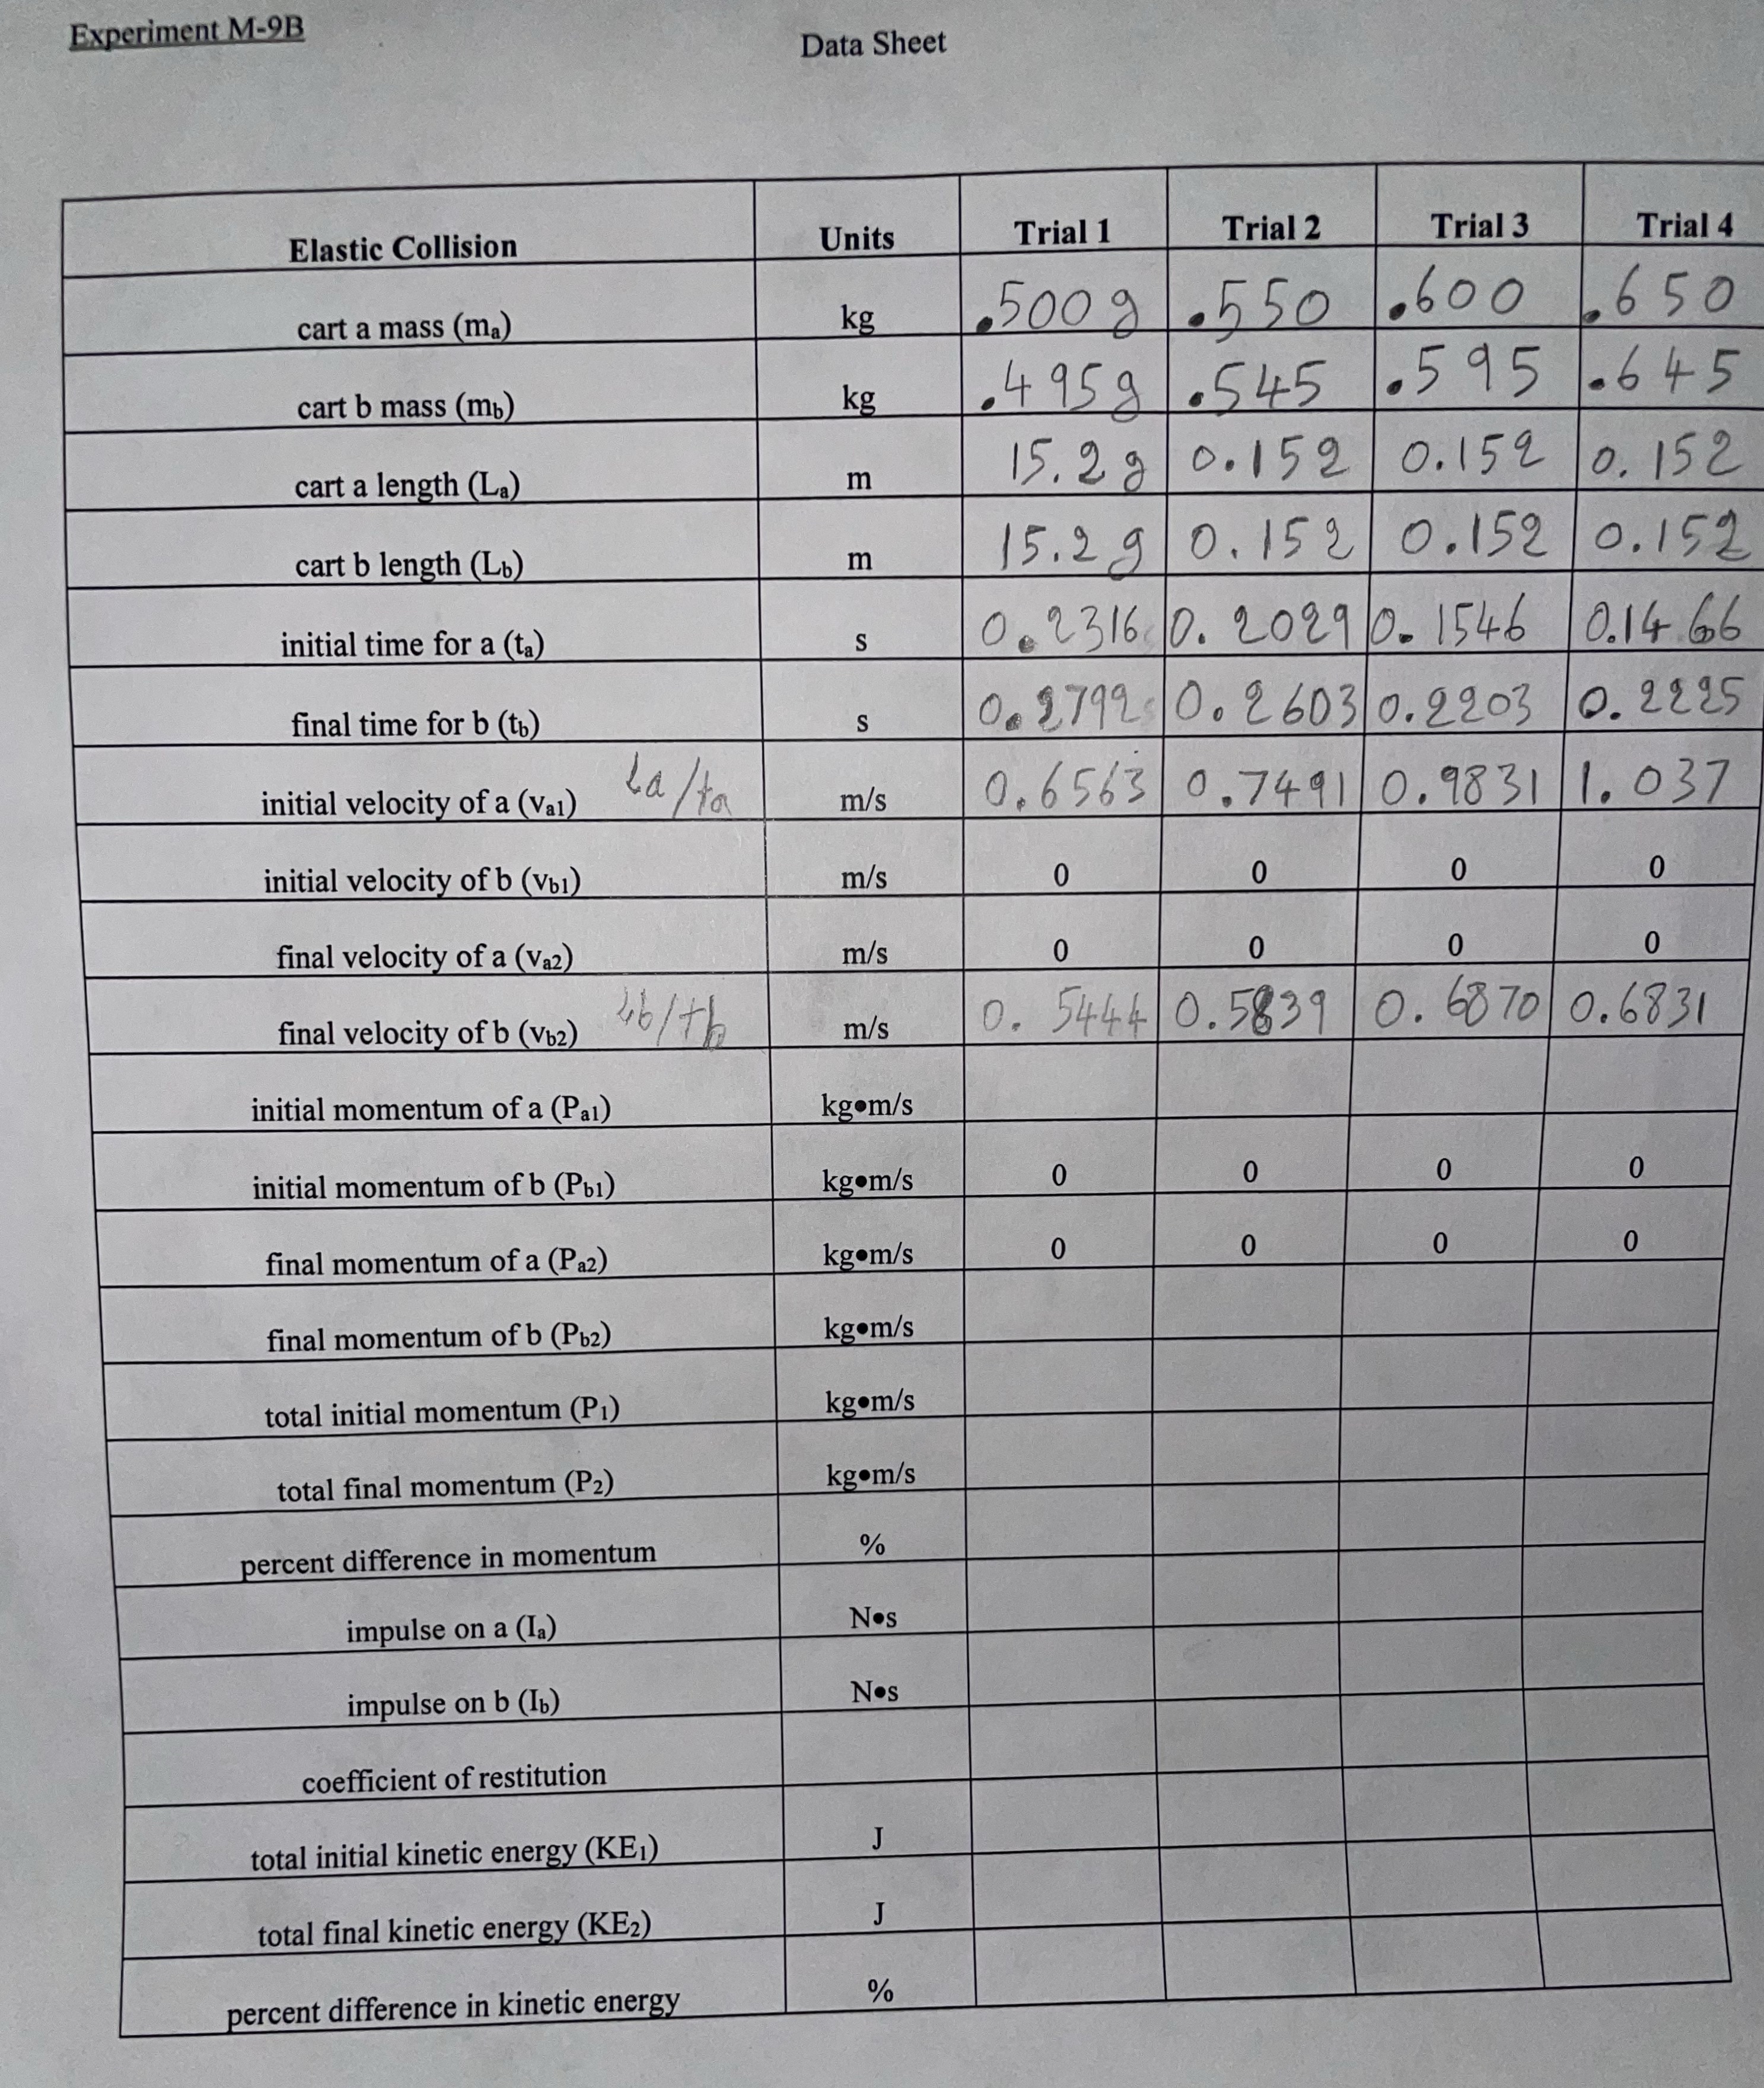 Experiment M-9B
Data Sheet
Elastic Collision Units Trial 1 Trial 2 Trial 3 Trial 4
cart a mass (ma) kg .500g .550 .600 .650
cart b mass (mb) kg .495g .545 .595 .645
cart a length (La) m 15.2g 0.152 0.152 0.152
cart b length (Lb) m 15.2g 0.152 0.152 0.152
initial time for a (ta) s 0.2316 0.2029 0.1546 0.1466
final time for b (tb) s 0.2792 0.2603 0.2203 0.2225
initial velocity of a (va1) La/ta m/s 0.6563 0.7491 0.9831 1.037
initial velocity of b (vb1) m/s 0 0 0 0
final velocity of a (va2) m/s 0 0 0 0
final velocity of b (vb2) Lb/tb m/s 0.5444 0.5839 0.6870 0.6831
initial momentum of a (Pa1) kg•m/s
initial momentum of b (Pb1) kg•m/s 0 0 0 0
final momentum of a (Pa2) kg•m/s 0 0 0 0
final momentum of b (Pb2) kg•m/s
total initial momentum (P1) kg•m/s
total final momentum (P2) kg•m/s
percent difference in momentum %
impulse on a (Ia) N•s
impulse on b (Ib) N•s
coefficient of restitution
total initial kinetic energy (KE1) J
total final kinetic energy (KE2) J
percent difference in kinetic energy %